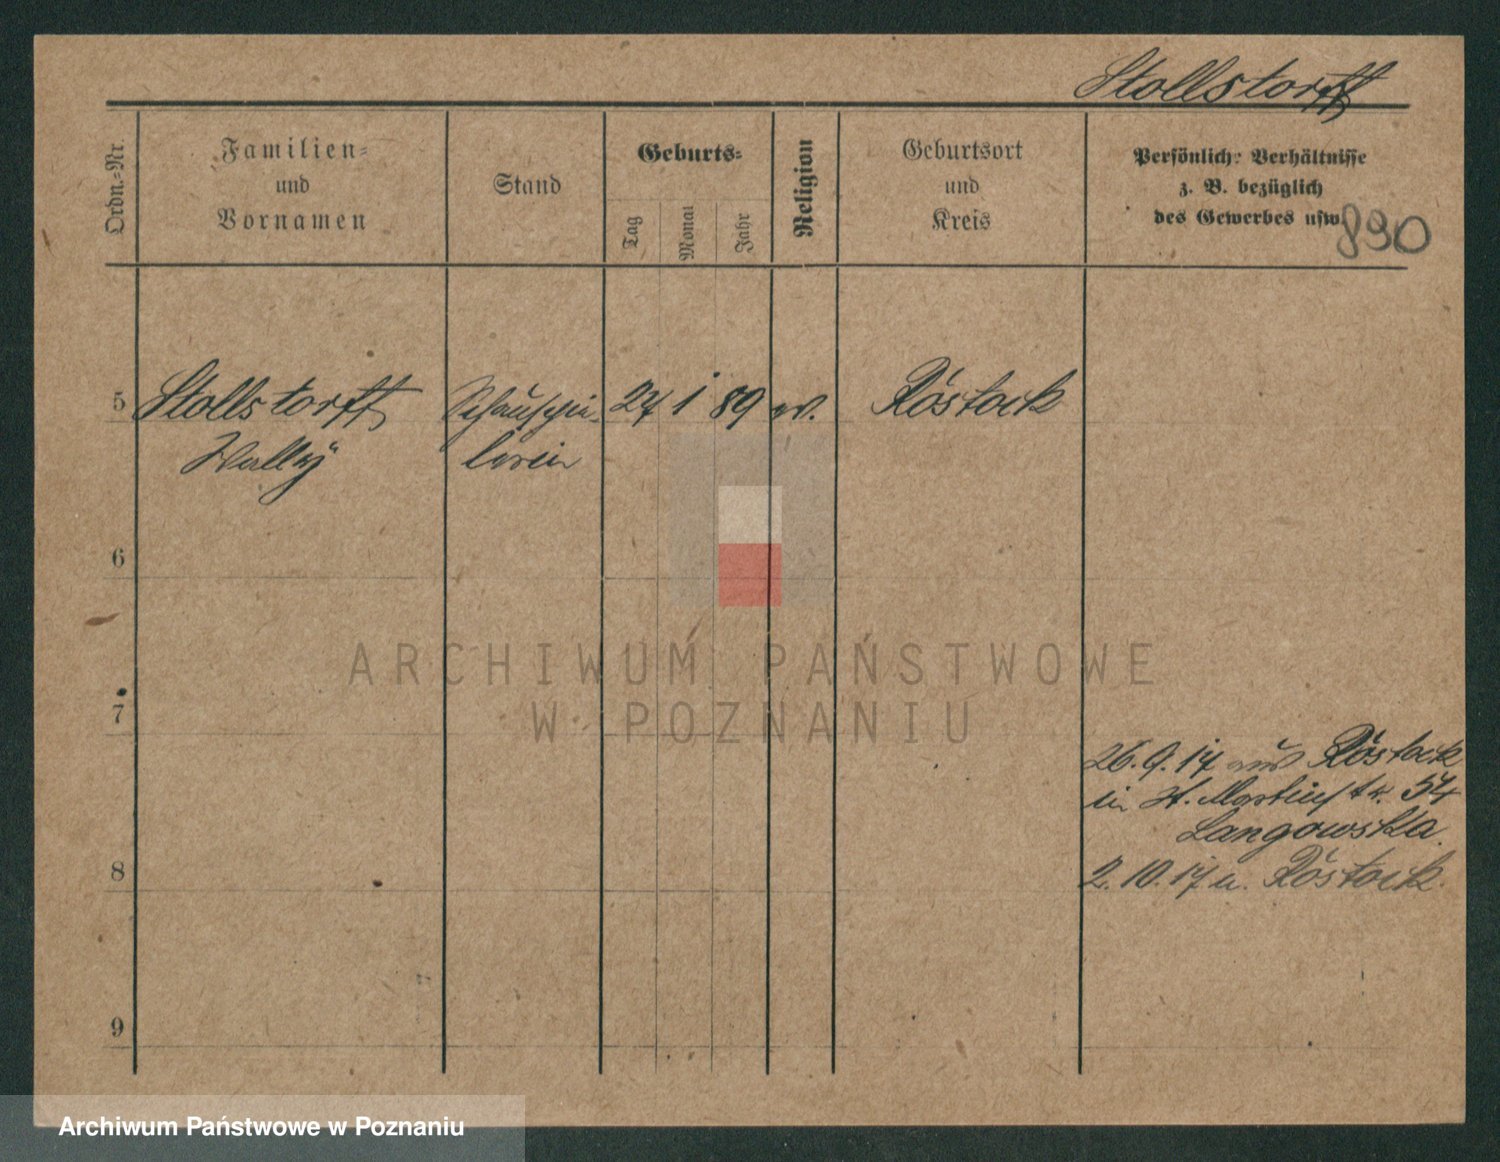 Stollstorff
Ordn.-Nr.
Familien-
und
Vornamen
Stand
Geburts-
Tag
Monat
Jahr
Religion
Geburtsort
und
Kreis
Persönlich. Verhältnisse
z. B. bezüglich
des Gewerbes usw.
890
5 Stollstorff Schauspie- 27 1 89 ev. Rostock
Wally lerin
6
ARCHIWUM PAŃSTWOWE
W POZNANIU
7
26.9.17 aus Rostock
in St. Martinstr. 54
Langowska.
8
2.10.17 n. Rostock.
9
Archiwum Państwowe w Poznaniu